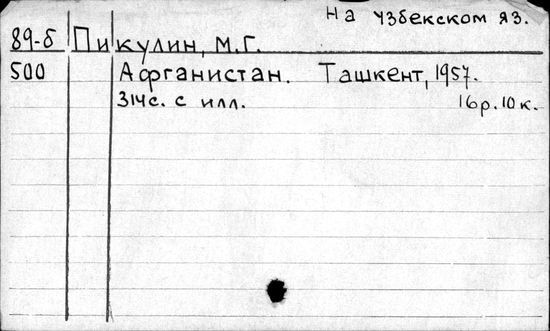 На узбекском яз.
89-б Пикулин, М.Г.
500 Афганистан. Ташкент, 1957.
314с. с илл. 16р.10к.